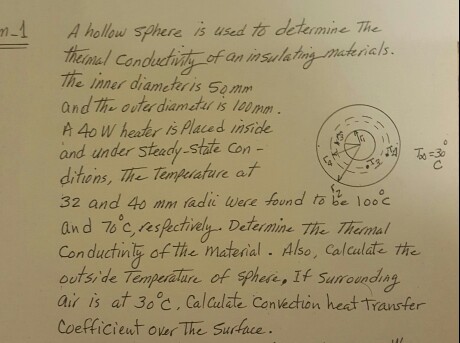 n-1 A hollow sphere is used to determine The
thermal conductivity of an insulating materials.
The inner diameter is 50mm
and the outer diameter is 100mm.
A 40W heater is Placed inside
and under steady-state con-
ditions, The Temperature at
32 and 40 mm radii were found to be 100°C
and 70°C, respectively. Determine The Thermal
Conductivity of the Material. Also, Calculate the
outside Temperature of sphere, If Surrounding
air is at 30°C, Calculate Convection heat Transfer
Coefficient over The Surface.
T∞ = 30°
C
r2